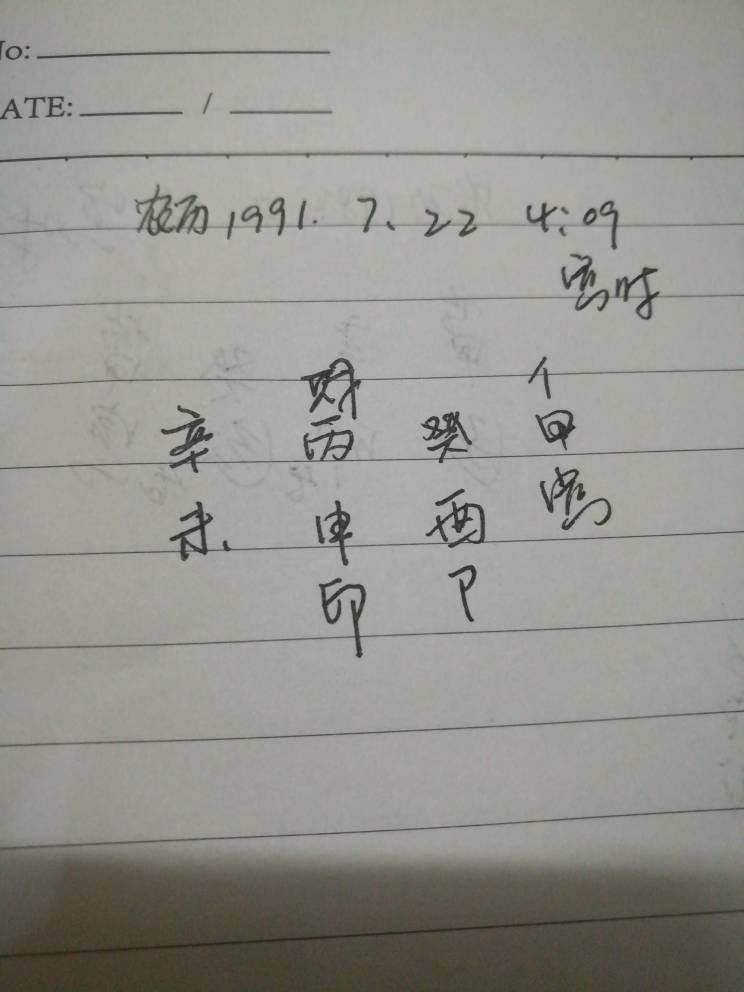 No:
DATE: /
农历1991. 7、22 4:09
寅时
财
辛 丙 癸 甲
未、 申 酉 寅
印 卩